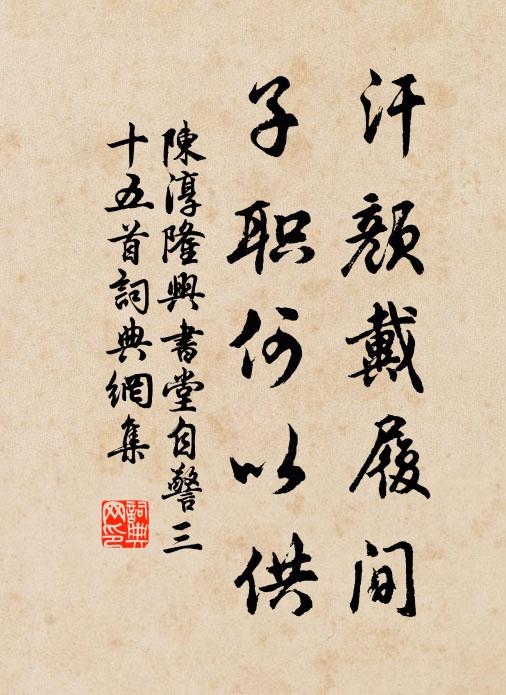 汗颜戴履间
子职何以供
陳淳隆興書堂自警三
十五首詞典網集
詞典网印